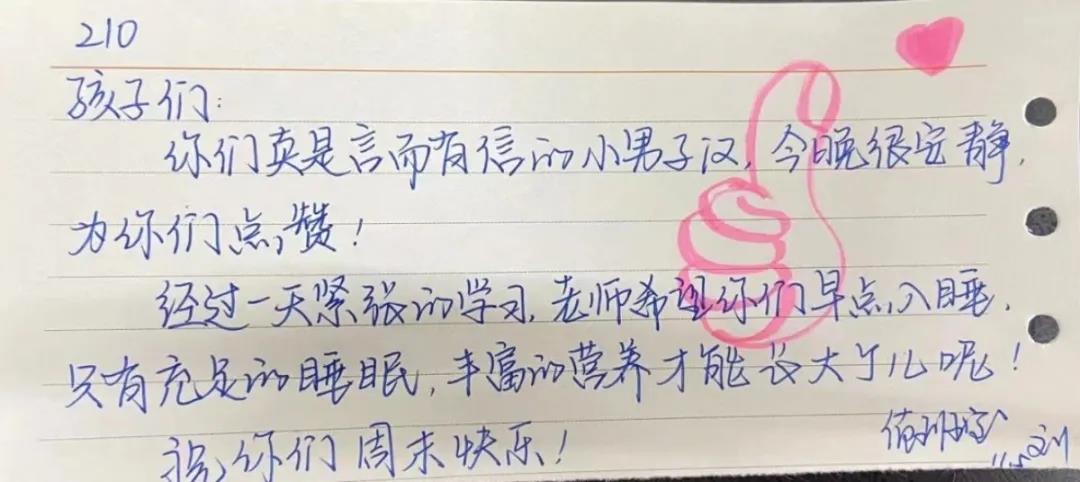 210
孩子们:
你们真是言而有信的小男子汉,今晚很安静,
为你们点赞!
经过一天紧张的学习,老师希望你们早点入睡,
只有充足的睡眠,丰富的营养才能长大个儿呢!
祝你们周末快乐!
值班
刘